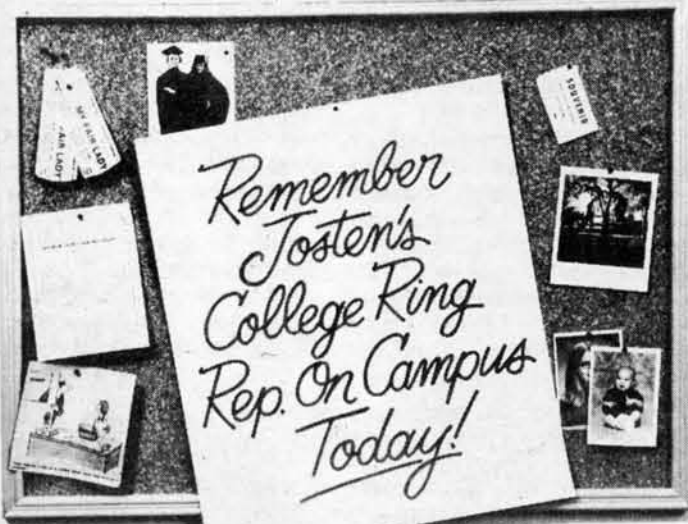 MY FAIR LADY
FAIR LADY
SOUVENIR
Remember
Josten's
College Ring
Rep. On Campus
Today!